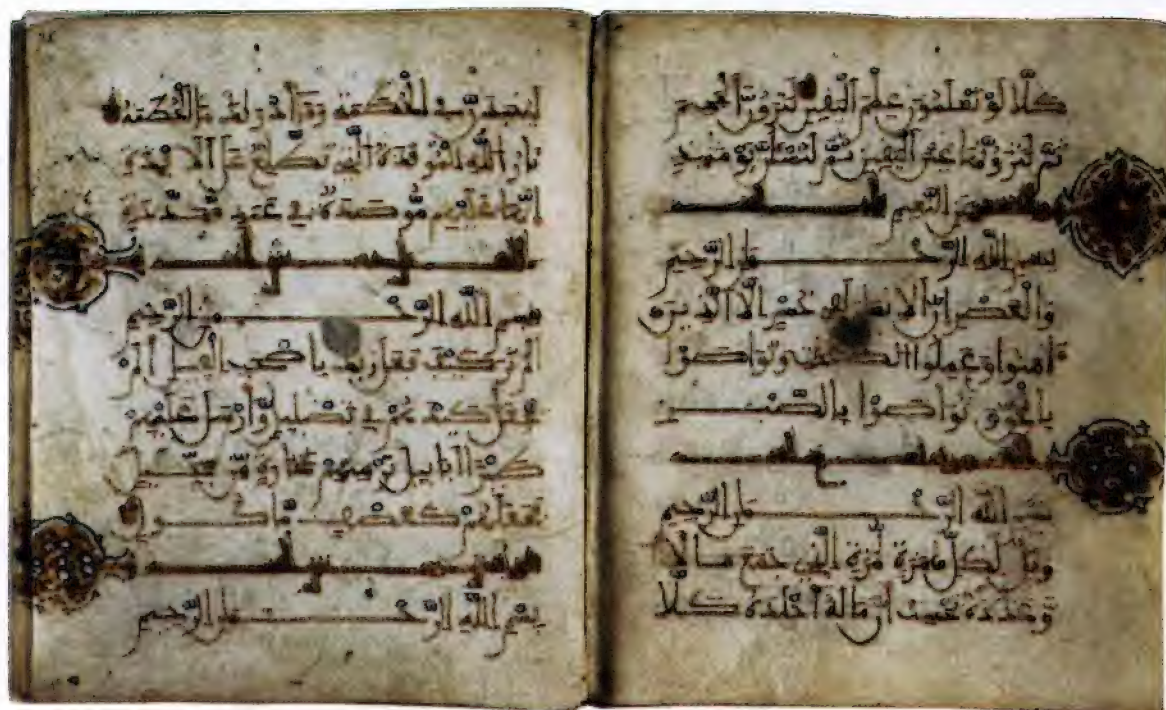 كَلَّا لَوْ تَعْلَمُونَ عِلْمَ الْيَقِينِ لَتَرَوُنَّ الْجَحِيمَ
ثُمَّ لَتَرَوُنَّهَا عَيْنَ الْيَقِينِ ثُمَّ لَتُسْـَٔلُنَّ يَوْمَئِذٍ
عَنِ النَّعِيمِ
بِسْمِ اللَّهِ الرَّحْمَٰنِ الرَّحِيمِ
وَالْعَصْرِ إِنَّ الْإِنسَٰنَ لَفِي خُسْرٍ إِلَّا الَّذِينَ
ءَامَنُوا وَعَمِلُوا الصَّٰلِحَٰتِ وَتَوَاصَوْا
بِالْحَقِّ وَتَوَاصَوْا بِالصَّبْرِ
بِسْمِ اللَّهِ الرَّحْمَٰنِ الرَّحِيمِ
وَيْلٌ لِّكُلِّ هُمَزَةٍ لُّمَزَةٍ الَّذِي جَمَعَ مَالًا
وَعَدَّدَهُ يَحْسِبُ أَنَّ مَالَهُ أَخْلَدَهُ كَلَّا
لَيُنبَذَنَّ فِي الْحُطَمَةِ وَمَا أَدْرَىٰكَ مَا الْحُطَمَةُ
نَارُ اللَّهِ الْمُوقَدَةُ الَّتِي تَطَّلِعُ عَلَى الْأَفْـِٔدَةِ
إِنَّهَا عَلَيْهِم مُّوصَدَةٌ فِي عَمَدٍ مُّمَدَّدَةٍ
بِسْمِ اللَّهِ الرَّحْمَٰنِ الرَّحِيمِ
أَلَمْ تَرَ كَيْفَ فَعَلَ رَبُّكَ بِأَصْحَٰبِ الْفِيلِ أَلَمْ
يَجْعَلْ كَيْدَهُمْ فِي تَضْلِيلٍ وَأَرْسَلَ عَلَيْهِمْ
طَيْرًا أَبَابِيلَ تَرْمِيهِم بِحِجَارَةٍ مِّن سِجِّيلٍ
فَجَعَلَهُمْ كَعَصْفٍ مَّأْكُولٍ
بِسْمِ اللَّهِ الرَّحْمَٰنِ الرَّحِيمِ